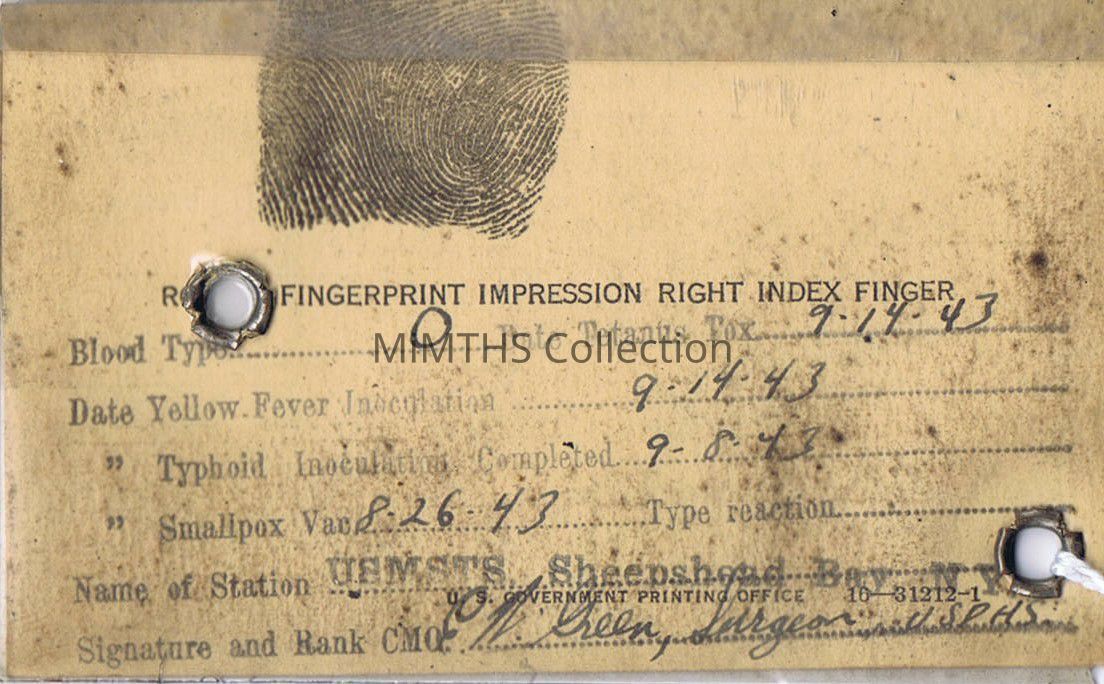 FINGERPRINT IMPRESSION RIGHT INDEX FINGER
Blood Type O Date Tetanus Tox. 9-14-43
MIMTHS Collection
Date Yellow Fever Inoculation 9-14-43
" Typhoid Inoculation Completed 9-8-43
" Smallpox Vac 8-26-43 Type reaction
Name of Station USMSTS. Sheepshead Bay NY
U. S. GOVERNMENT PRINTING OFFICE 16—31212-1
Signature and Rank CMO W. Green, Surgeon, USPHS